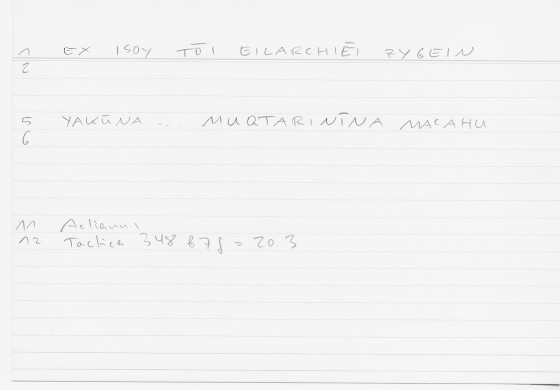 1 EX ISOY TŌI EILARCHIĒI ZYGEIN
2
5 YAKŪNA ... MUQTARINĪNA MAʿAHU
6
11 Aelianus
12 Tactica 348 b 7 f = 20.3